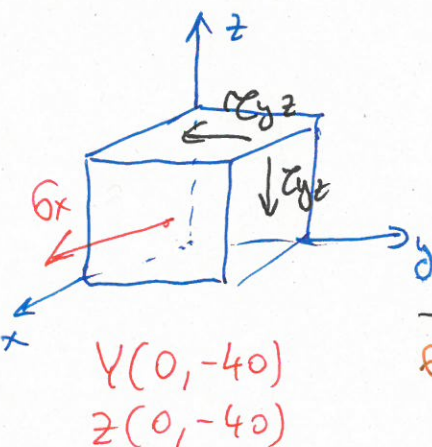 z
τyz
τyz
σx
y
x
Y(0,-40)
z(0,-40)